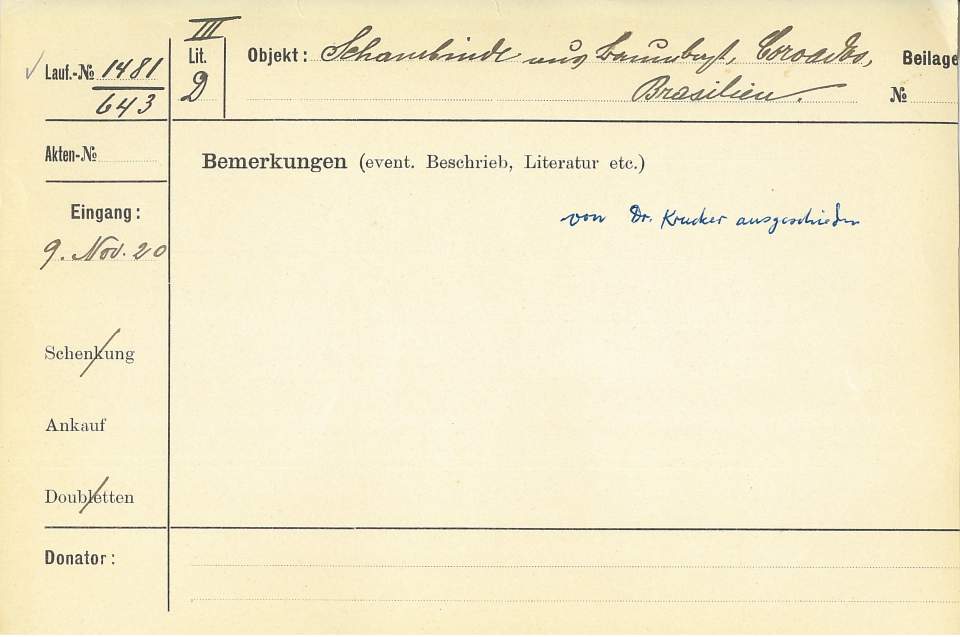 III
✓ Lauf.-№ 1481
643
Lit.
D
Objekt: Schambinde aus Baumbast, Coroados,
Brasilien.
Beilage
№
Akten-№
Bemerkungen (event. Beschrieb, Literatur etc.)
Eingang:
9. Nov. 20
von Dr. Krucker ausgeschieden
Schenkung
Ankauf
Doubletten
Donator: